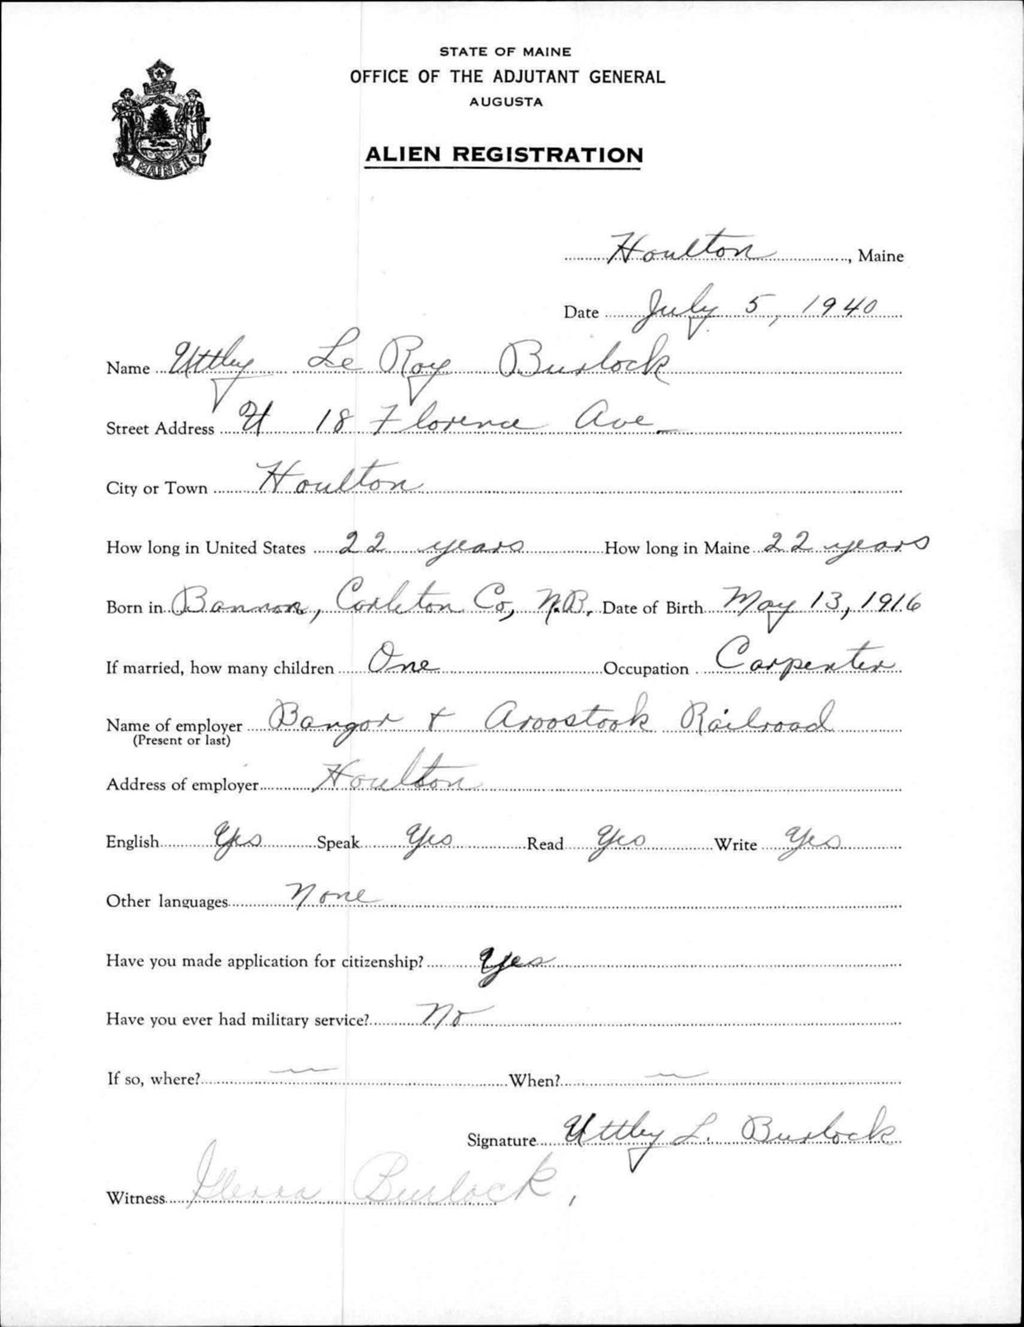 STATE OF MAINE
OFFICE OF THE ADJUTANT GENERAL
AUGUSTA
ALIEN REGISTRATION
MAINE
Houlton, Maine
Date July 5, 1940
Name Uttley Le Roy Burlock
Street Address 18 Florence Ave
City or Town Houlton
How long in United States 22 years How long in Maine 22 years
Born in Bannon, Carleton Co, N.B. Date of Birth May 13, 1916
If married, how many children One Occupation Carpenter
Name of employer Bangor & Aroostook Railroad
(Present or last)
Address of employer Houlton
English Yes Speak Yes Read Yes Write Yes
Other languages None
Have you made application for citizenship? Yes
Have you ever had military service? No
If so, where? — When? —
Signature Uttley L. Burlock
Witness Burlock,